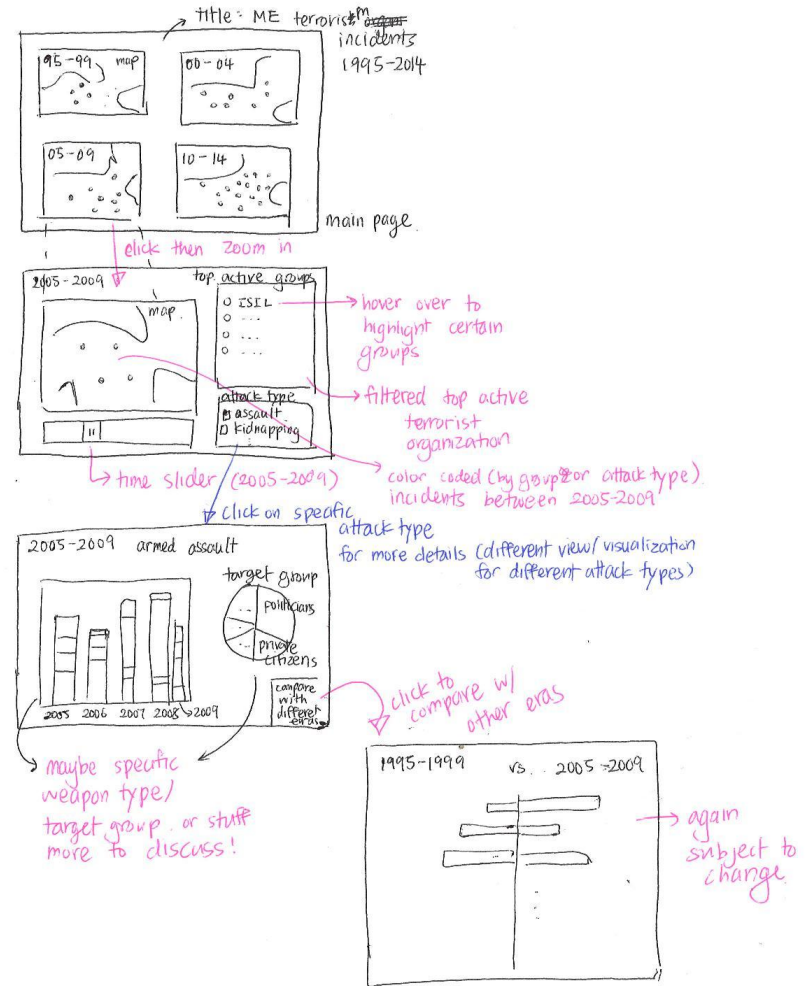 title: ME terrorism
incidents
1995-2014
95-99 map
00-04
05-09
10-14
main page.
click then zoom in
2005-2009
top active groups
map.
ISIL
...
...
...
hover over to
highlight certain
groups
attack type
assault
kidnapping
filtered top active
terrorist
organization
time slider (2005-2009)
color coded (by group or attack type)
incidents between 2005-2009
click on specific
attack type
for more details (different view/visualization
for different attack types)
2005-2009 armed assault
target group
politicians
private
citizens
...
...
...
2005 2006 2007 2008 2009
compare
with
different
eras
click to
compare w/
other eras
maybe specific
weapon type/
target group or stuff
more to discuss!
1995-1999 vs. 2005-2009
again
subject to
change